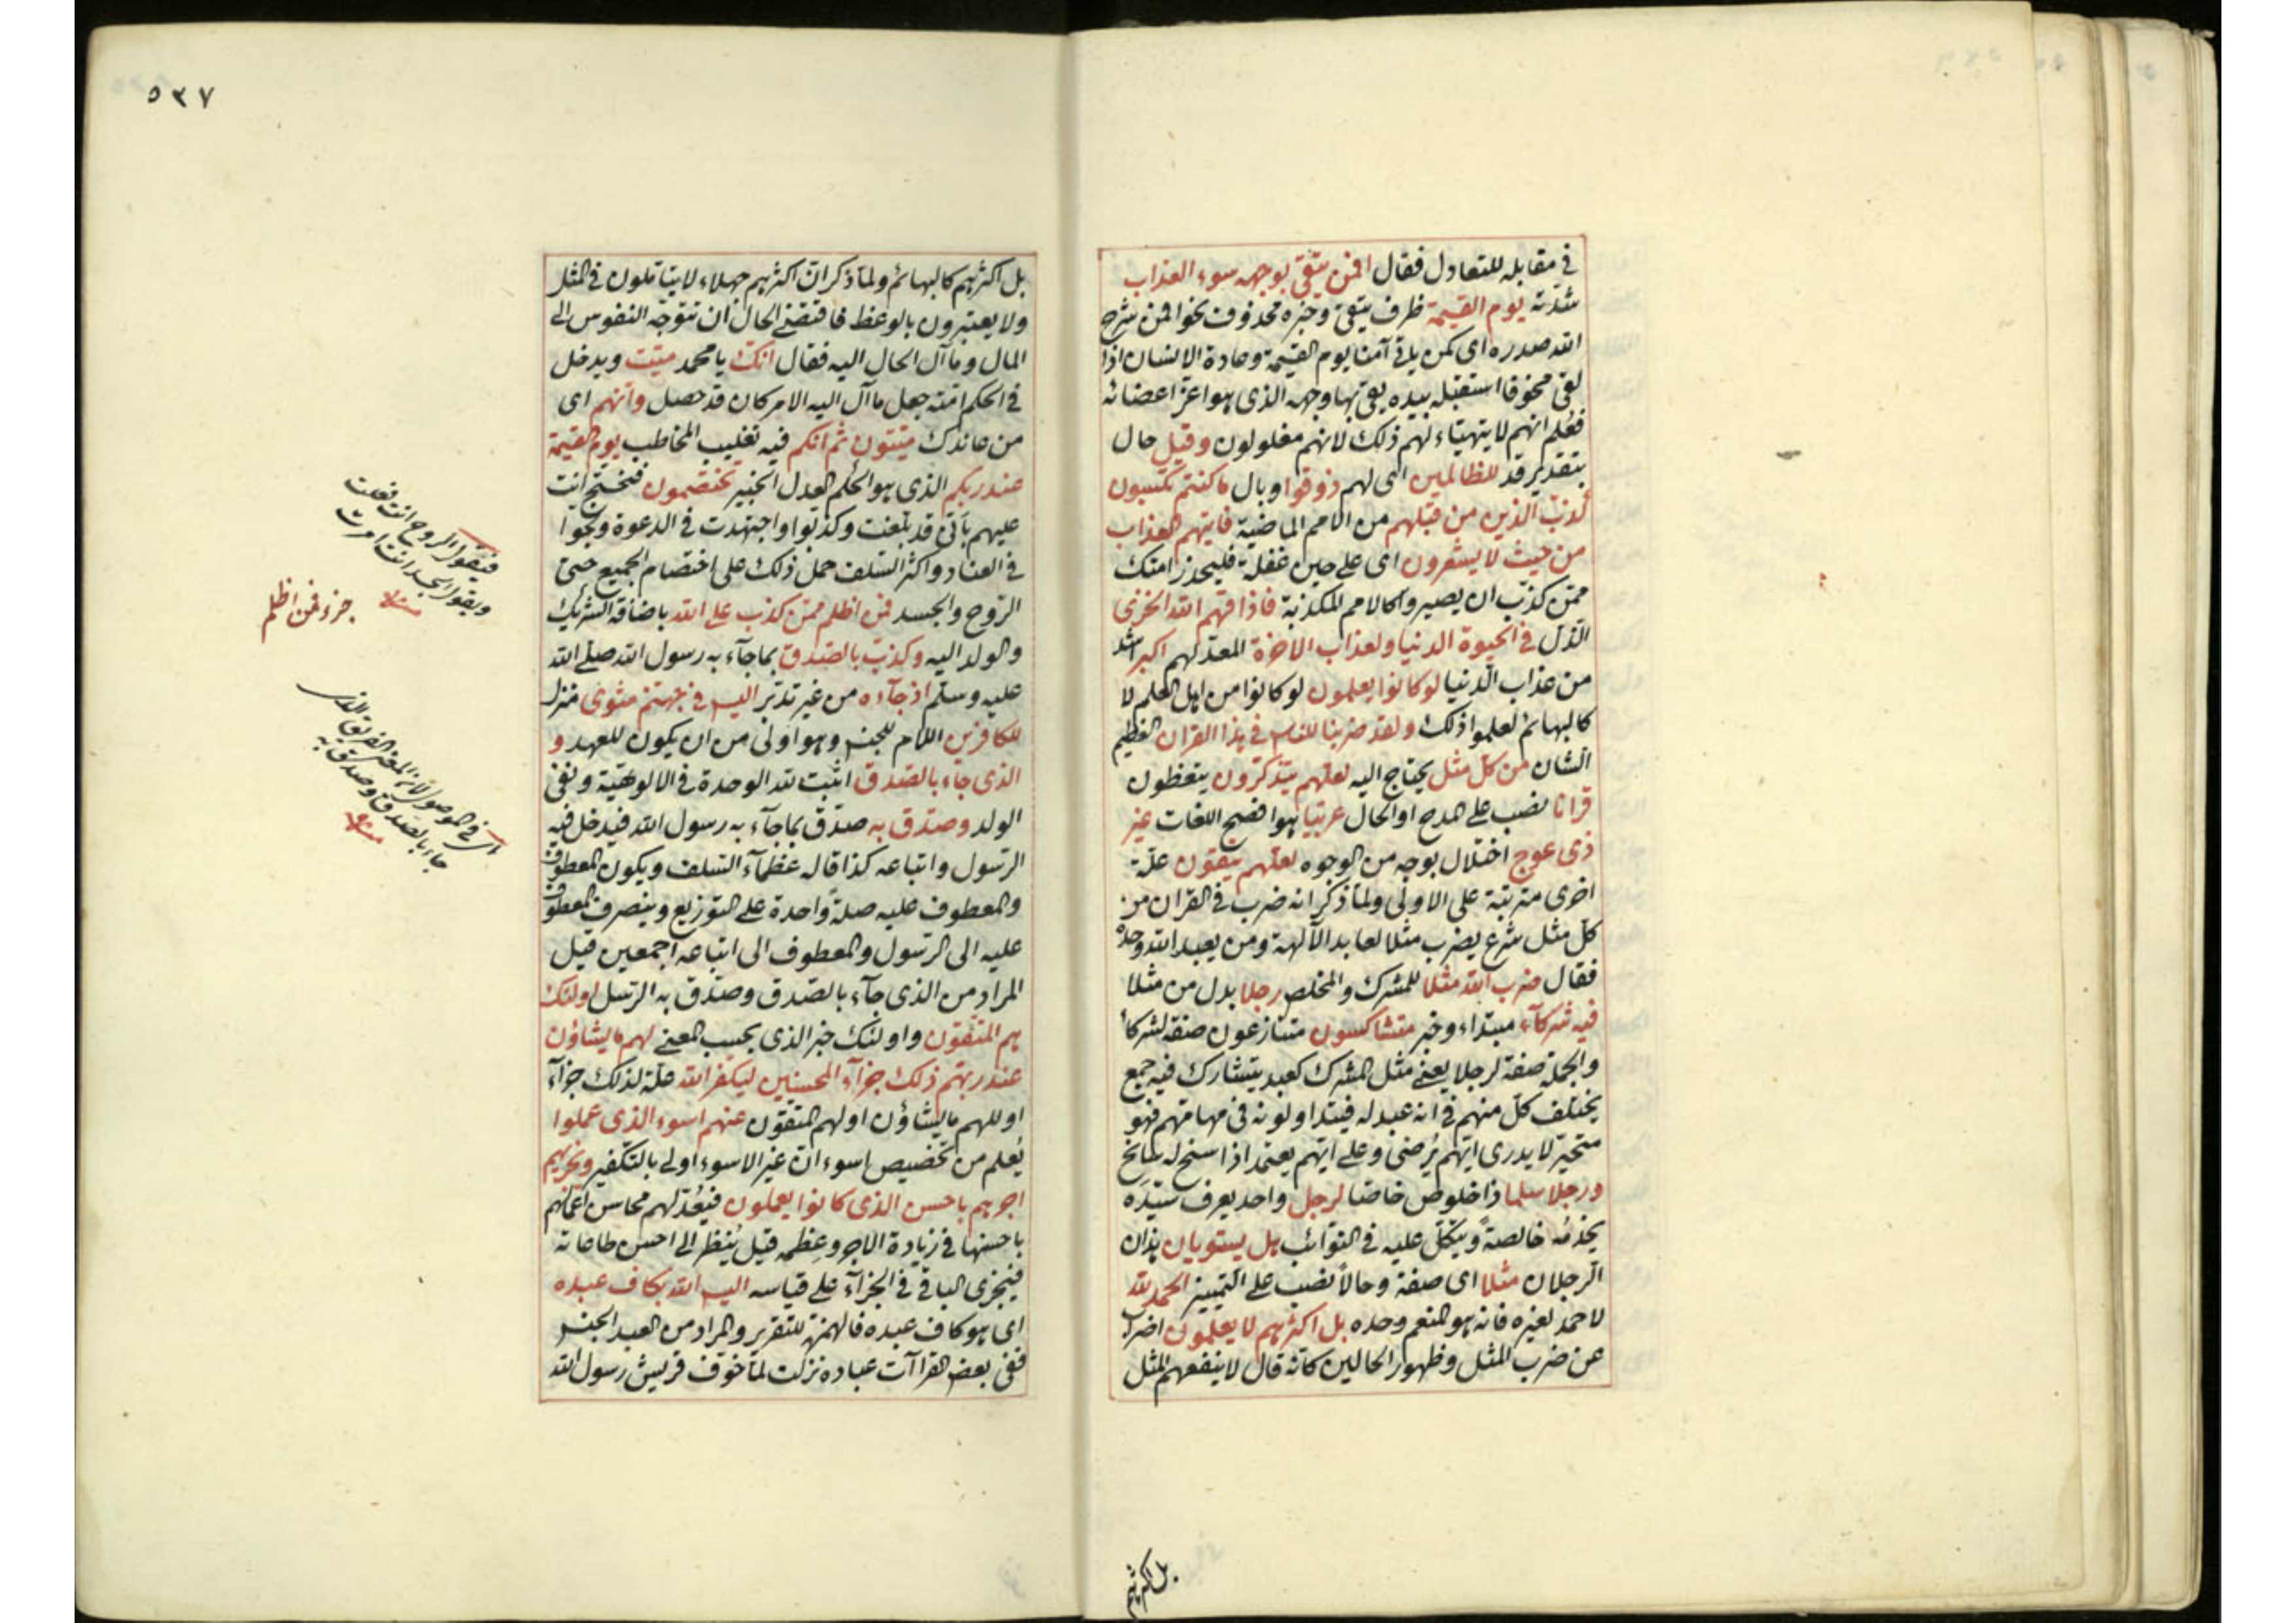 في مقابله للتعادل فقال افمن يتقي بوجهه سوء العذاب
شدته يوم القيمة ظرف يتقي وخبره محذوف نحو افمن شرح
الله صدره اى كمن ياتي آمنا يوم القيمة وعادة الانسان اذا
لقى مخوفا استقبله بيده يقي بها وجهه الذى هو اعز اعضائه
فعلم انهم لا يتهياء لهم ذلك لانهم مغلولون وقيل حال
بتقدير قد للظالمين اى لهم ذوقوا وبال ما كنتم تكسبون
كذب الذين من قبلهم من الامم الماضية فاتيهم العذاب
من حيث لا يشعرون اى على حين غفلة فليحذر امتك
ممن كذب ان يصيروا كالامم المكذبة فاذاقهم الله الخزى
الذل في الحيوة الدنيا ولعذاب الاخرة المعد لهم اكبر اشد
من عذاب الدنيا لو كانوا يعلمون لو كانوا من اهل العلم لا
كالبهائم لعلموا ذلك ولقد ضربنا للناس في هذا القران العظيم
الشان من كل مثل يحتاج اليه لعلهم يتذكرون يتعظون
قرانا نصب على المدح او الحال عربيا هو افصح اللغات غير
ذى عوج اختلال بوجه من الوجوه لعلهم يتقون علة
اخرى مترتبة على الاولى ولما ذكر انه ضرب في القران من
كل مثل شرع يضرب مثلا لعابد الآلهة ومن يعبد الله وحده
فقال ضرب الله مثلا للمشرك والمخلص رجلا بدل من مثلا
فيه شركآء مبتداء وخبر متشاكسون متنازعون صفة لشركاء
والجملة صفة لرجلا يعني مثل المشرك كعبد يتشارك فيه جمع
يختلف كل منهم في انه عبد له فيتداولونه في مهامهم فهو
متحير لا يدرى ايهم يرضى وعلى ايهم يعتمد اذا سنح له سانح
ورجلا سلما ذا خلوص خاصا لرجل واحد يعرف سيده
يخدمه خالصة ويتكل عليه في النوائب هل يستويان هذان
الرجلان مثلا اى صفة وحالا نصب على التمييز الحمد لله
لا حمد لغيره فانه هو المنعم وحده بل اكثرهم لا يعلمون اضراب
عن ضرب المثل وظهور الحالين كانه قال لا ينفعهم المثل
بل اكثرهم
٥٣٧
بل اكثرهم كالبهائم ولما ذكر ان اكثرهم جهلاء لا يتاملون في المثل
ولا يعتبرون بالوعظ فاقتضى الحال ان تتوجه النفوس الى
المال وما آل الحال اليه فقال انك يا محمد ميت ويدخل
في الحكم امته جعل ما آل اليه الامر كان قد حصل وانهم اى
من عاندك ميتون ثم انكم فيه تغليب المخاطب يوم القيمة
عند ربكم الذى هو الحكم العدل الخبير تختصمون فتحتج انت
عليهم بانى قد بلغت وكذبوا واجتهدت في الدعوة ولجوا
في العناد واكثر السلف حمل ذلك على اختصام الجميع حتى
الروح والجسد فمن اظلم ممن كذب على الله باضافة الشريك
والولد اليه وكذب بالصدق بما جآء به رسول الله صلى الله
عليه وسلم اذ جآءه من غير تدبر اليس في جهنم مثوى منزل
للكافرين اللام للجنس وهو اولى من ان يكون للعهد و
الذى جاء بالصدق اثبت لله الوحدة في الالوهية ونفى
الولد وصدق به صدق بما جآء به رسول الله فيدخل فيه
الرسول واتباعه كذا قاله عظمآء السلف ويكون المعطوف
والمعطوف عليه صلة واحدة على التوزيع وينصرف المعطوف
عليه الى الرسول والمعطوف الى اتباعه اجمعين قيل
المراد من الذى جآء بالصدق وصدق به الرسل اولئك
هم المتقون واولئك خبر الذى بحسب المعنى لهم ما يشاؤن
عند ربهم ذلك جزآء المحسنين ليكفر الله علة لذلك جزآء
او للهم ما يشاؤن او لهم المتقون عنهم اسوء الذى عملوا
يعلم من تخصيص اسوء ان غير الاسوء اولى بالتكفير ونجزيهم
اجرهم باحسن الذى كانوا يعملون فيعد لهم محاسن اعمالهم
باحسنها في زيادة الاجر وعظمه قيل ينظر الى احسن طاعاته
فيجزى الباقي في الجزآء على قياسه اليس الله بكاف عبده
اى هو كاف عبده فالهمزة للتقرير والمراد من العبد الجنس
ففى بعض القراآت عباده نزلت لما خوف قريش رسول الله
فيقول الروح انت فعلت
ويقول الجسد انت امرت
منه
جزء فمن اظلم
اى في الموصول لان المعنى الفريق الذى
جاء بالصدق وصدق به
منه